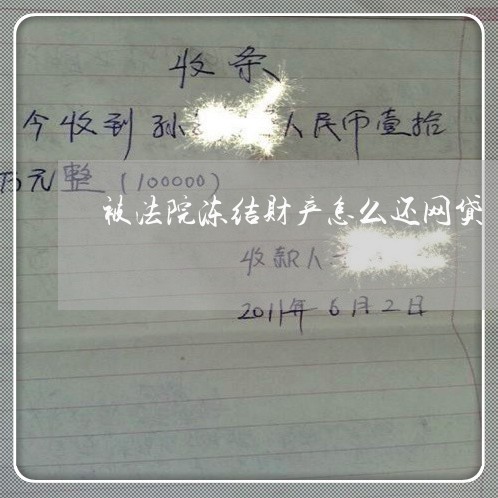 收条
今收到孙 人民币壹拾
万元整(100000)
被法院冻结财产怎么还网贷
收款人
2011年6月2日